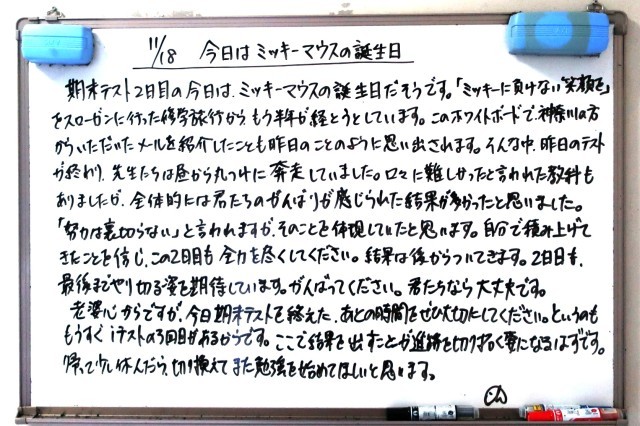 11/18 今日はミッキーマウスの誕生日
期末テスト2日目の今日は、ミッキーマウスの誕生日だそうです。「ミッキーに負けない笑顔を」
をスローガンに行った修学旅行からもう半年が経とうとしています。このホワイトボードで、神奈川の方
からいただいたメールを紹介したことも昨日のことのように思い出されます。そんな中、昨日のテスト
が終わり、先生たちは昼から丸つけに奔走していました。口々に難しかったと言われた教科も
ありましたが、全体的には君たちのがんばりが感じられた結果が多かったと思いました。
「努力は裏切らない」と言われますが、そのことを体現していたと思います。自分で積み上げて
きたことを信じ、この2日目も全力を尽くしてください。結果は後からついてきます。2日目も、
最後までやり切る姿を期待しています。がんばってください。君たちなら大丈夫です。
老婆心からですが、今日期末テストを終えた、あとの時間をぜひ大切にしてください。というのも
もうすぐ iテストの3回目があるからです。ここで結果を出すことが進路を切り拓く要になるはずです。
帰って少し休んだら、切り換えてまた勉強を始めてほしいと思います。